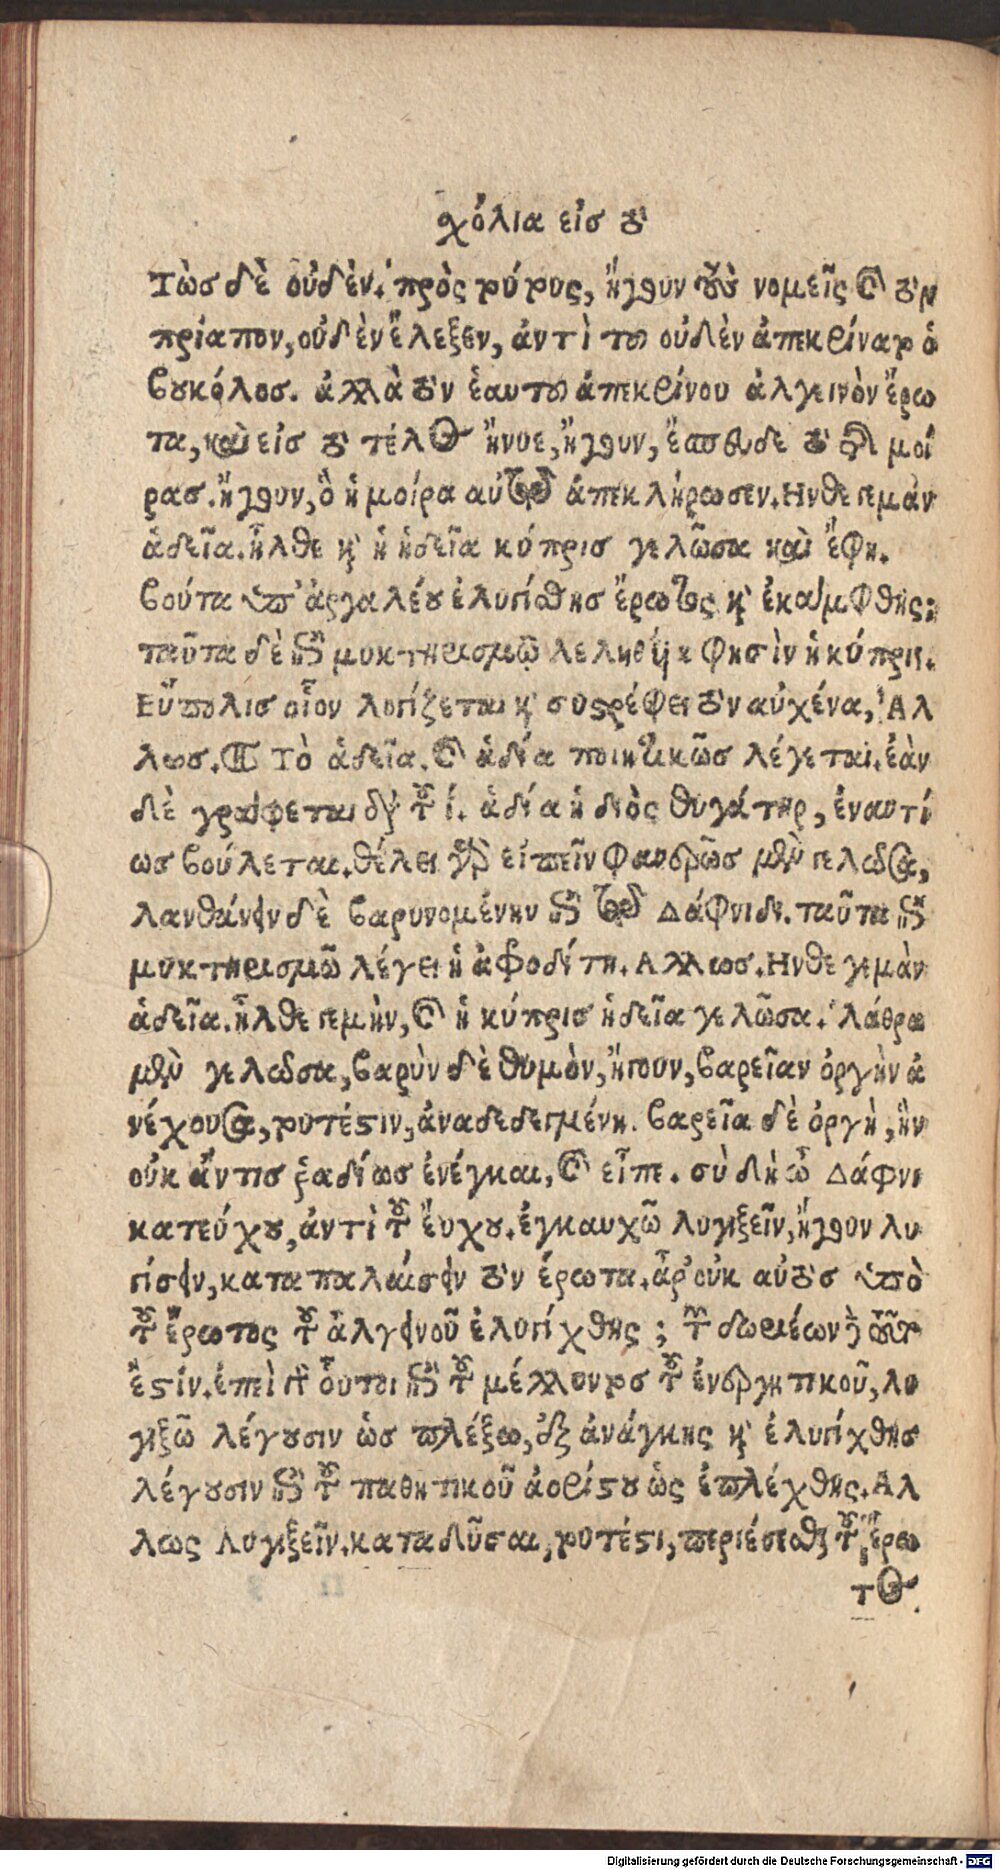 σχόλια εἰσ τὸ
Τὼσ δὲ οὐδὲν. πρὸς τούτους, ἤγουν τοὺς νομεῖς καὶ τὸν
πρίαπον, οὐδὲν ἔλεξεν, ἀντὶ τοῦ οὐδὲν ἀπεκρίνατο ὁ
βουκόλοσ. ἀλλὰ τὸν ἑαυτοῦ ἀπεκρίνου ἀλγεινὸν ἔρω
τα, καὶ εἰσ τὸ τέλος ἤνυε, ἤγουν, ἔσπευδε τὸ τῆς μοί
ρασ. ἤγουν, ὃ ἡ μοίρα αὐτῷ ἀπεκλήρωσεν. Ηνθε γεμὰν
ἁδεῖα. ἦλθε καὶ ἡ ἡδεῖα κύπρισ γελῶσα καὶ ἔφη.
βούτα ὑπ' ἀργαλέου ἐλυγίσθησ ἔρωτος καὶ ἐκάμφθης;
ταῦτα δὲ ἐπὶ μυκτηρισμῷ λεληθότι φησὶν ἡ κύπρις.
Εὔπολισ οἷον λογίζεται καὶ συστρέφει τὸν αὐχένα, Ἀλ
λωσ. Τὸ ἁδεῖα. καὶ ἁδέα ποιητικῶσ λέγεται. ἐὰν
δὲ γράφεται διὰ τοῦ ί. ἁδία ἡ διὸς θυγάτηρ, ἐναντί
ωσ βούλεται. θέλει γὰρ εἰπεῖν φανερῶσ μὲν γελῶσα,
λανθάνειν δὲ βαρυνομένην ἐπὶ τῷ Δάφνιδι. ταῦτα ἐπὶ
μυκτηρισμῶ λέγει ἡ ἀφροδίτη. Αλλωσ. Ηνθε γεμὰν
ἁδεῖα. ἦλθε γεμὴν, καὶ ἡ κύπρισ ἡδεῖα γελῶσα. λάθρα
μὲν γελῶσα, βαρὺν δὲ θυμὸν, ἤγουν, βαρεῖαν ὀργὴν ἀ
νέχουσα, τουτέστιν, ἀναδεδεγμένη. βαρεῖα δὲ ὀργὴ, ἣν
οὐκ ἄν τισ ῥαδίωσ ἐνέγκαι, καὶ εἶπε. σὺ δὴ ὦ Δάφνι
κατεύχου, ἀντὶ τοῦ ἔυχου. ἐγκαυχῶ λυγιξεῖν, ἤγουν λυ
γίσειν, καταπαλαίσειν τὸν ἔρωτα. ἆρ' οὐκ αὐτὸσ ὑπὸ
τοῦ ἔρωτος τοῦ ἀλγεινοῦ ἐλυγίχθης; τῶν δωριέων τοῦτο
ἐστίν. ἐπεὶ γὰρ οὗτοι ἐπὶ τοῦ μέλλοντοσ τοῦ ἐνεργητικοῦ, λυ
γιξῶ λέγουσιν ὡσ πλέξω, ἐξ ἀνάγκης καὶ ἐλυγίχθησ
λέγουσιν ἐπὶ τοῦ παθητικοῦ ἀορίστου ὡς ἐπλέχθης. Αλ
λως λυγιξεῖν. καταδῦσαι, τουτέστι, περιέσεσθαι τοῦ ἔρω
τος.